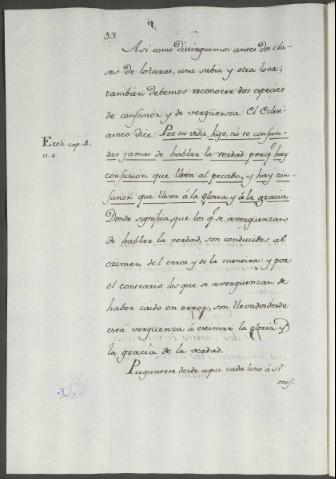 53.
Asi como distinguimos antes dos cla-
ses de locuras, una sabia y otra loca;
tambien debemos reconocer dos especies
de confusión y de vergüenza. El Ecles-
astico dice: Por tu vida, hijo, no te confun-
das jamas de hablar la verdad: porq.e hay
Eccli. cap. 4.
confusion que lleva al pecado, y hay con-
fusion que lleva á la gloria y á la gracia.
Donde significa, que los q.e se avergüenzan
de hablar la verdad, son conducidos al
crimen del error y de la mentira: y por
el contrario los que se avergüenzan de
haber caido en error, son llevados desde
esta vergüenza á la gloria y á
la gracia de la verdad.
Preguntese desde aqui cada uno á si
mis.